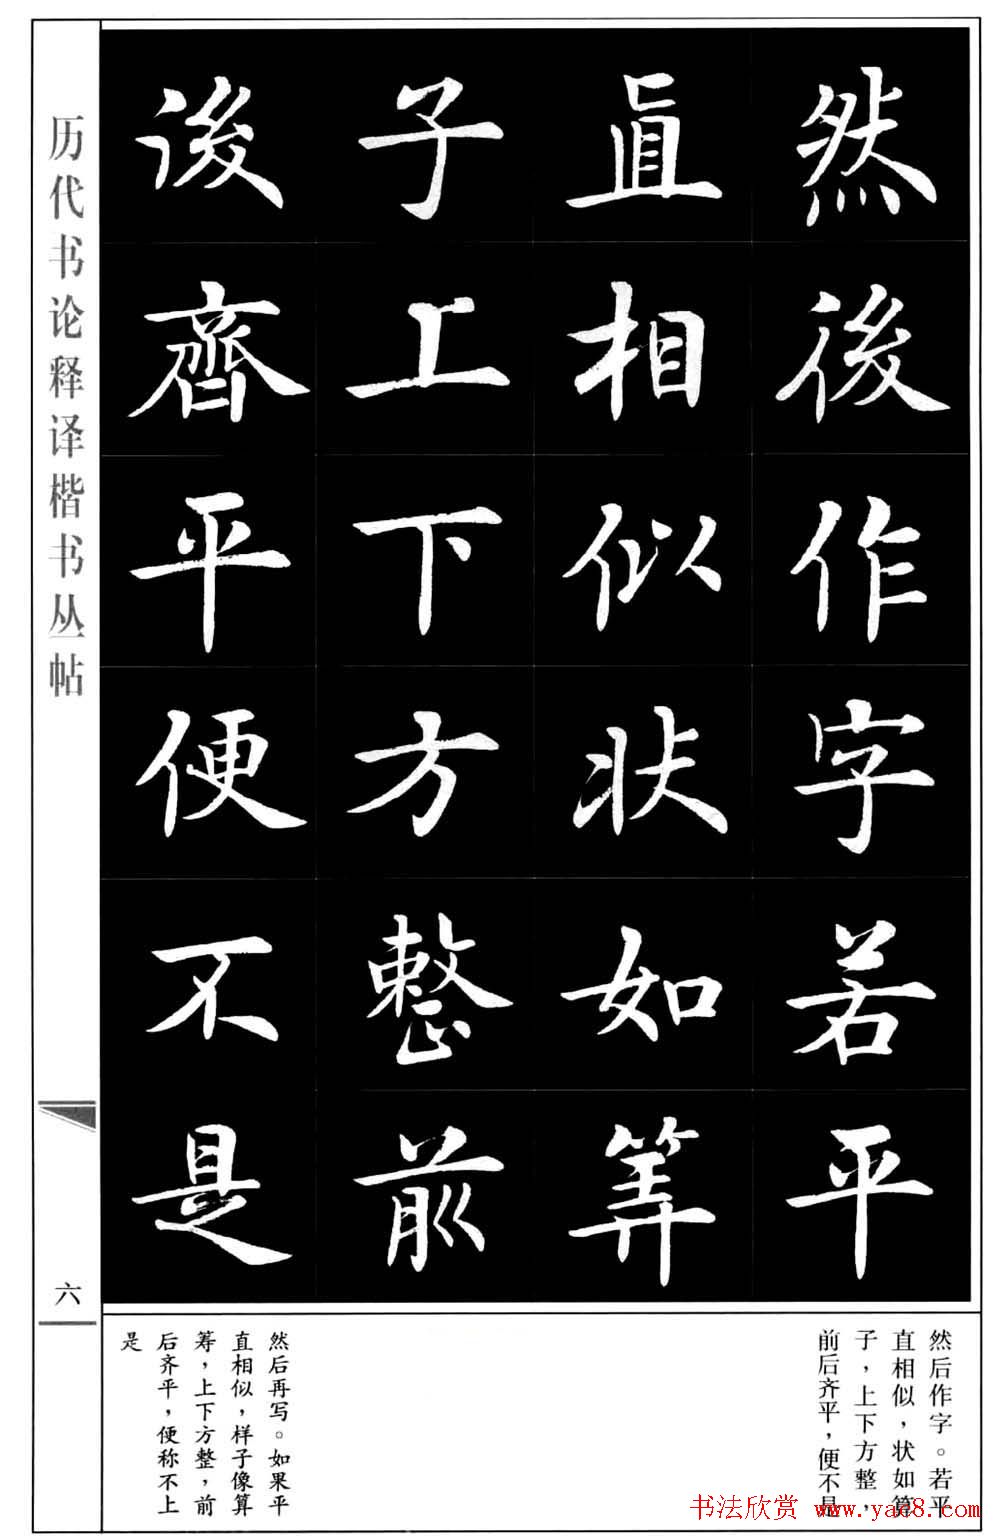 然後作字若平
直相似状如筭
子上下方整前
後齊平便不是
历代书论释译楷书丛帖
六
然后作字。若平
直相似，状如算
子，上下方整，
前后齐平，便不是
然后再写。如果平
直相似，样子像算
筹，上下方整，前
后齐平，便称不上
是
书法欣赏 www.yac8.com